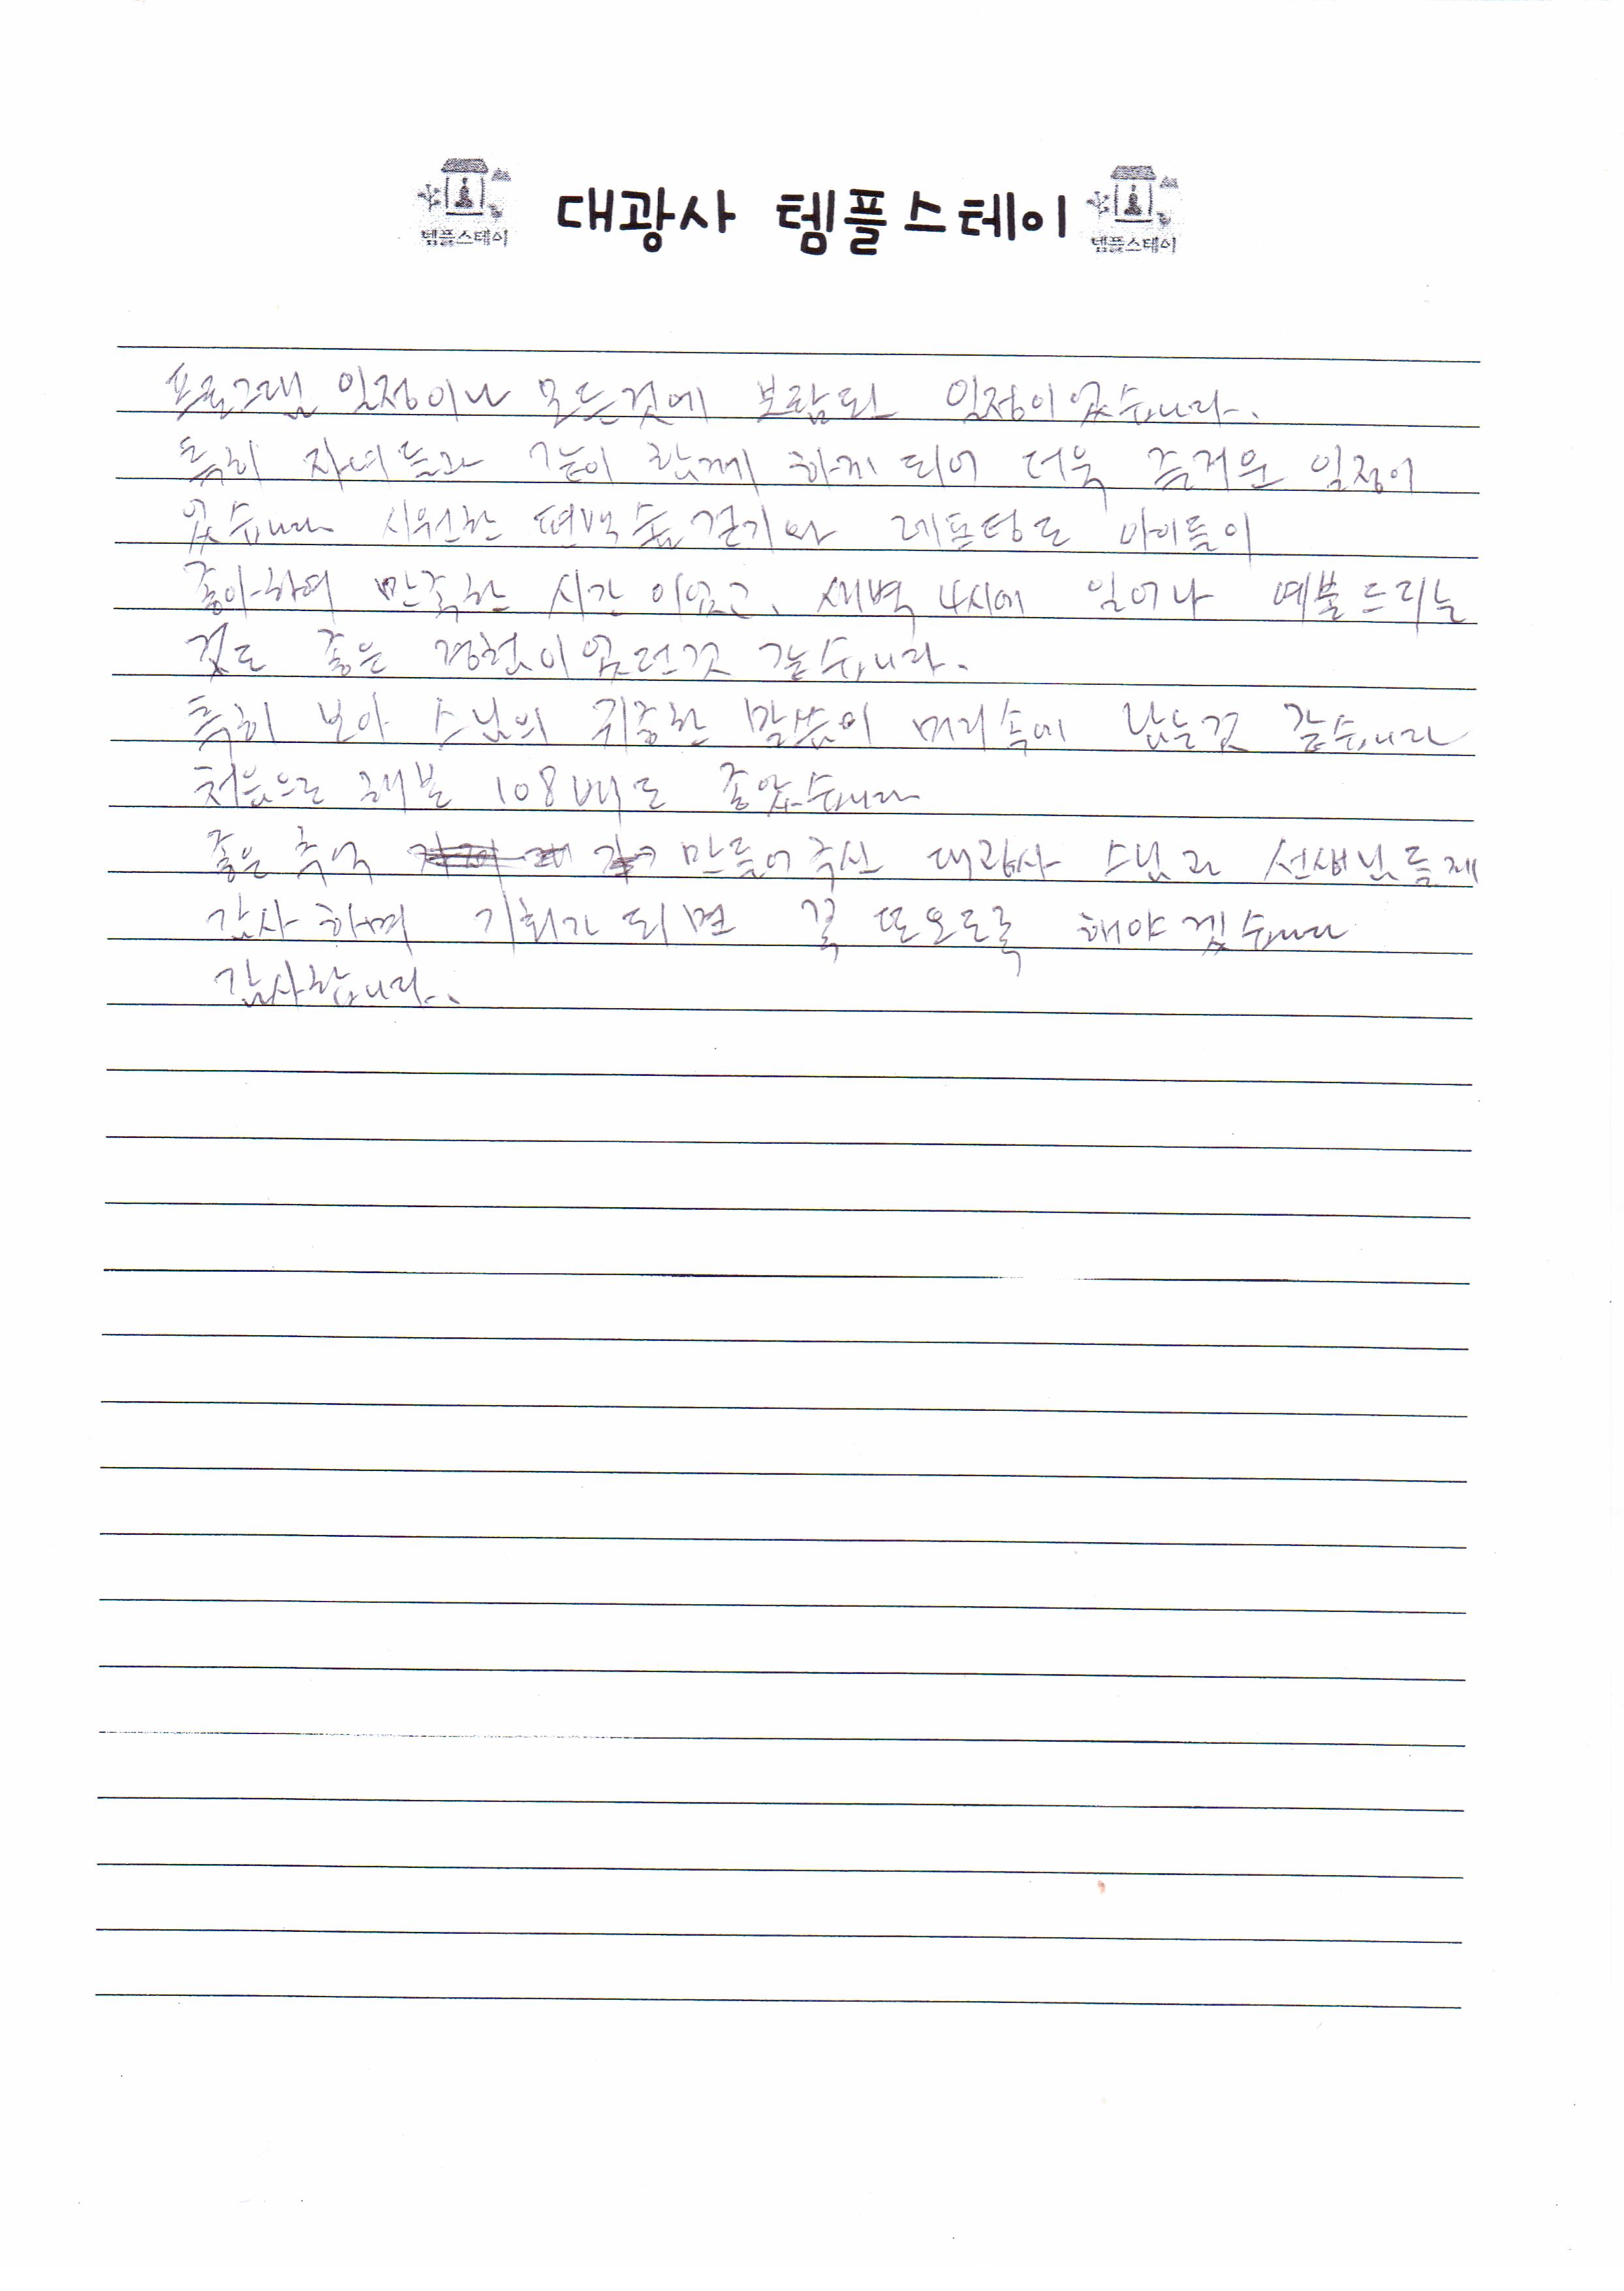 템플스테이 대광사 템플스테이 템플스테이
프로그램 일정이나 모든것에 보람된 일정이었습니다.
특히 자녀들과 같이 함께 하게 되어 더욱 즐거운 일정이
었습니다 시원한 편백숲걷기와 레프팅도 아이들이
좋아하여 만족한 시간 이었고, 새벽 4시에 일어나 예불드리는
것도 좋은 경험이었던것 같습니다.
특히 보아 스님의 귀중한 말씀이 머리속에 남는것 같습니다
처음으로 해본 108배도 좋았습니다
좋은 추억 만들어주신 대광사 스님과 선생님들께
감사하며 기회가 되면 꼭 또오도록 해야겠습니다
감사합니다..